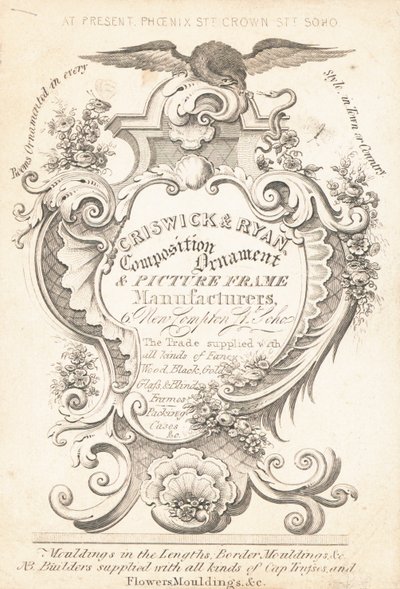 AT PRESENT, PHŒNIX STT CROWN STT SOHO
Rooms Ornamented in every
Style, in Town or Country
CRISWICK & RYAN
Composition
Ornament
& PICTURE FRAME
Manufacturers,
6 New Compton St. Soho
The Trade supplied with
all kinds of Fancy
Wood, Black, Gold
Glass, & Blind
Frames
Packing
Cases
&c.
Mouldings in the Lengths, Border Mouldings, &c.
NB. Builders supplied with all kinds of Cap Trusses, and
Flowers Mouldings, &c.